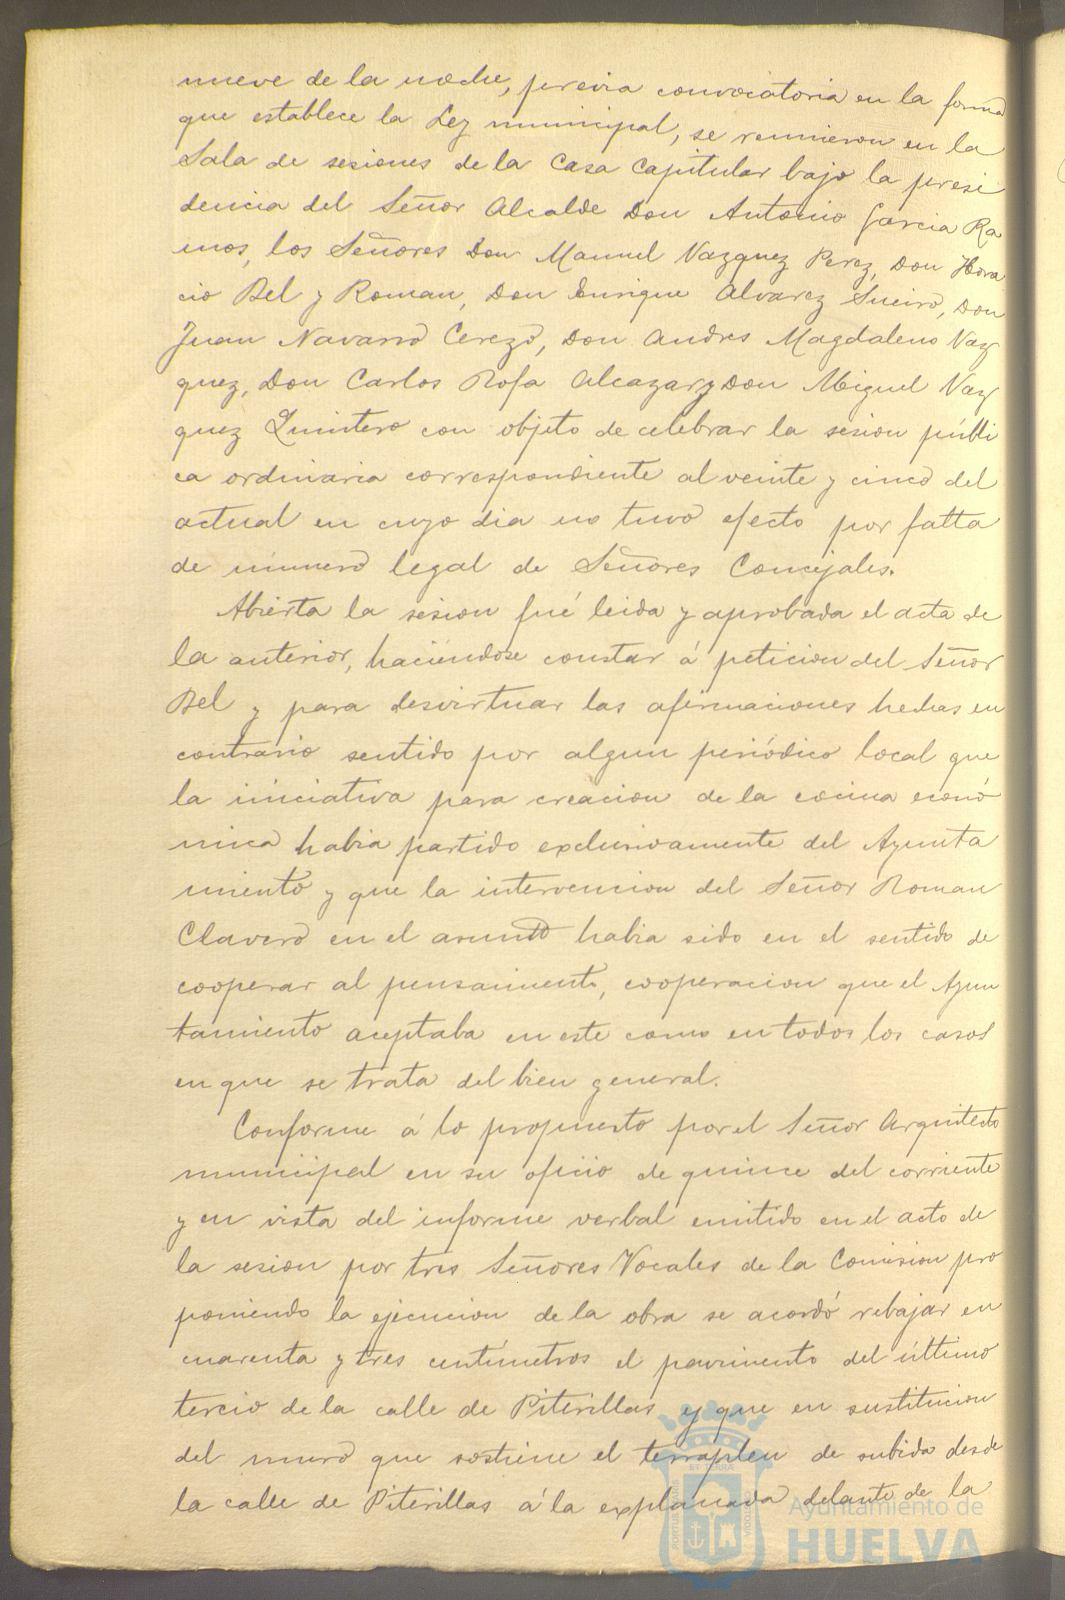 nueve de la noche, previa convocatoria en la forma
que establece la Ley municipal, se reunieron en la
Sala de sesiones de la Casa Capitular bajo la presi
dencia del Señor Alcalde Don Antonio Garcia Ra
mos, los Señores Don Manuel Vazquez Perez, Don Hora
cio Bel y Roman, Don Enrique Alvarez Sueiro, Don
Juan Navarro Cerezo, Don Andres Magdaleno Vaz
quez, Don Carlos Rofa Alcazar y Don Miguel Vaz
quez Quintero con objeto de celebrar la sesion públi
ca ordinaria correspondiente al veinte y cinco del
actual en cuyo dia no tuvo efecto por falta
de número legal de Señores Concejales.
Abierta la sesion fué leida y aprobada el acta de
la anterior, haciéndose constar á peticion del Señor
Bel y para desvirtuar las afirmaciones hechas en
contrario sentido por algun periódico local que
la iniciativa para creacion de la cocina econó
mica habia partido exclusivamente del Ayunta
miento y que la intervencion del Señor Roman
Clavero en el asunto habia sido en el sentido de
cooperar al pensamiento, cooperacion que el Ayun
tamiento aceptaba en este como en todos los casos
en que se trata del bien general.
Conforme á lo propuesto por el Señor Arquitecto
municipal en su oficio de quince del corriente
y en vista del informe verbal emitido en el acto de
la sesion por tres Señores Vocales de la Comision pro
poniendo la ejecucion de la obra se acordó rebajar en
cuarenta y tres centímetros el pavimento del último
tercio de la calle de Piterillas y que en sustitucion
del muro que sostiene el terraplen de subida desde
la calle de Piterillas á la explanada delante de la
Ayuntamiento de
HUELVA